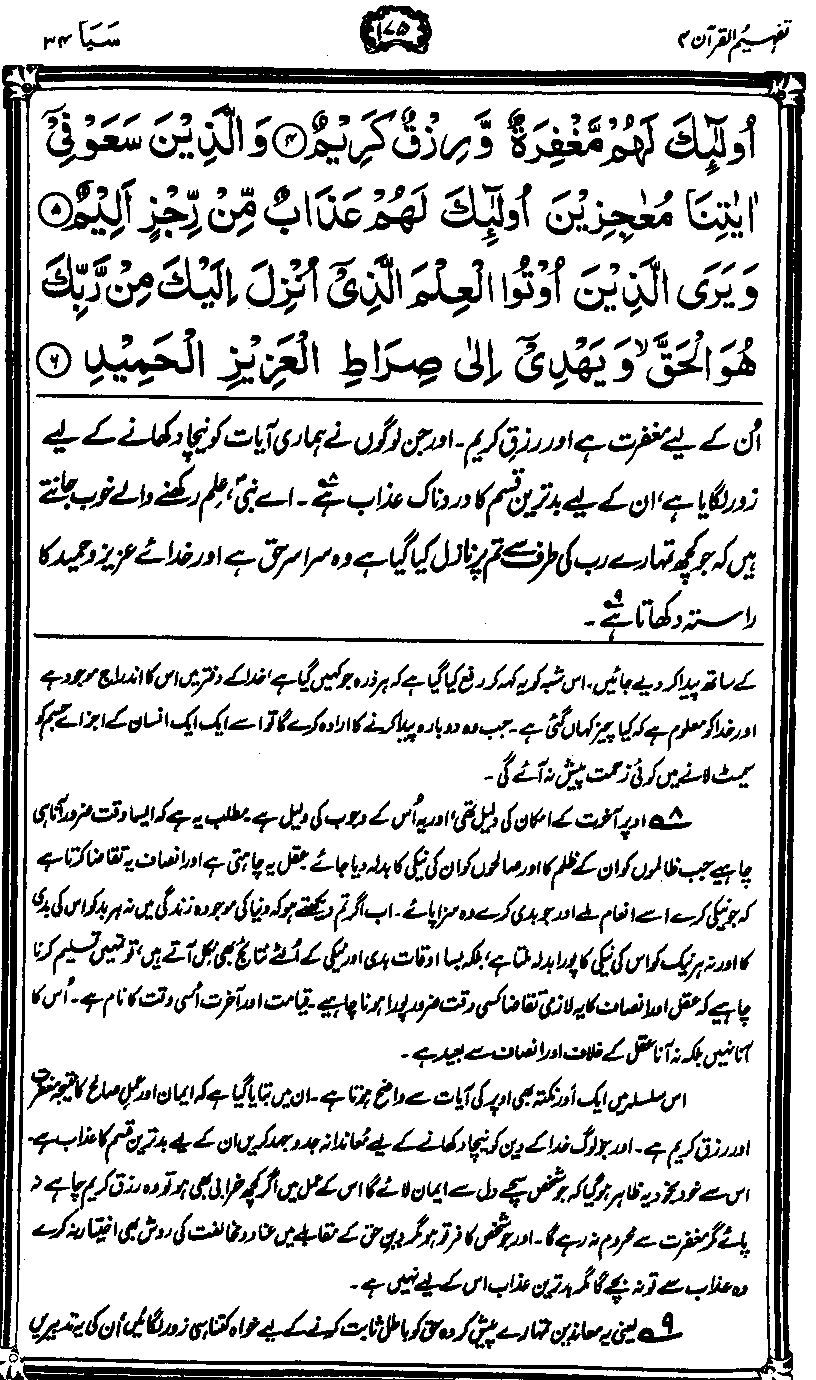 تفہیم القرآن ۴
۱۷۵
سَبَا ۳۴
اُولٰٓئِكَ لَهُمْ مَّغْفِرَةٌ وَّ رِزْقٌ كَرِيْمٌ ۴ وَ الَّذِيْنَ سَعَوْ فِيْٓ
اٰيٰتِنَا مُعٰجِزِيْنَ اُولٰٓئِكَ لَهُمْ عَذَابٌ مِّنْ رِّجْزٍ اَلِيْمٌ ۵
وَ يَرَى الَّذِيْنَ اُوْتُوا الْعِلْمَ الَّذِيْٓ اُنْزِلَ اِلَيْكَ مِنْ رَّبِّكَ
هُوَ الْحَقَّ ۙ وَ يَهْدِيْٓ اِلٰى صِرَاطِ الْعَزِيْزِ الْحَمِيْدِ ۶
اُن کے لیے مغفرت ہے اور رزقِ کریم۔ اور جن لوگوں نے ہماری آیات کو نیچا دکھانے کے لیے
زور لگایا ہے، ان کے لیے بدترین قسم کا دردناک عذاب ہے۸۔ اے نبیؐ، علم رکھنے والے خوب جانتے
ہیں کہ جو کچھ تمہارے رب کی طرف سے تم پر نازل کیا گیا ہے وہ سراسر حق ہے اور خدائے عزیز و حمید کا
راستہ دکھاتا ہے۹۔
کے ساتھ پیدا کر دیے جائیں۔ اس شبہ کو یہ کہہ کر رفع کیا گیا ہے کہ ہر ذرہ جو کہیں گیا ہے، خدا کے دفتر میں اس کا اندراج موجود ہے
اور خدا کو معلوم ہے کہ کیا چیز کہاں گئی ہے۔ جب وہ دوبارہ پیدا کرنے کا ارادہ کرے گا تو اسے ایک ایک انسان کے اجزائے جسم کو
سمیٹ لانے میں کوئی زحمت پیش نہ آئے گی۔
۸ اوپر آخرت کے امکان کی دلیل تھی، اور یہ اُس کے وجوب کی دلیل ہے۔ مطلب یہ ہے کہ ایسا وقت ضرور آنا ہی
چاہیے جب ظالموں کو ان کے ظلم کا اور صالحوں کو ان کی نیکی کا بدلہ دیا جائے۔ عقل یہ چاہتی ہے اور انصاف یہ تقاضا کرتا ہے
کہ جو نیکی کرے اسے انعام ملے اور جو بدی کرے وہ سزا پائے۔ اب اگر تم دیکھتے ہو کہ دنیا کی موجودہ زندگی میں نہ ہر بد کو اس کی بدی
کا اور نہ ہر نیک کو اس کی نیکی کا پورا بدلہ ملتا ہے، بلکہ بسا اوقات بدی اور نیکی کے اُلٹے نتائج بھی نکل آتے ہیں، تو تمہیں تسلیم کرنا
چاہیے کہ عقل اور انصاف کا یہ لازمی تقاضا کسی وقت ضرور پورا ہونا چاہیے۔ قیامت اور آخرت اُسی وقت کا نام ہے۔ اُس کا
آنا نہیں بلکہ نہ آنا عقل کے خلاف اور انصاف سے بعید ہے۔
اس سلسلہ میں ایک اَور نکتہ بھی اوپر کی آیات سے واضح ہوتا ہے۔ ان میں بتایا گیا ہے کہ ایمان اور عملِ صالح کا نتیجہ مغفرت
اور رزقِ کریم ہے۔ اور جو لوگ خدا کے دین کو نیچا دکھانے کے لیے مُعاندانہ جدوجہد کریں ان کے لیے بدترین قسم کا عذاب ہے۔
اس سے خود بخود یہ ظاہر ہو گیا کہ جو شخص سچے دل سے ایمان لائے گا اس کے عمل میں اگر کچھ خرابی بھی ہو تو وہ رزقِ کریم چاہے نہ
پائے مگر مغفرت سے محروم نہ رہے گا۔ اور جو شخص کافر تو ہو مگر دینِ حق کے مقابلے میں عناد و مخالفت کی روش بھی اختیار نہ کرے
وہ عذاب سے تو نہ بچے گا مگر بدترین عذاب اس کے لیے نہیں ہے۔
۹ یعنی یہ معاندین تمہارے پیش کردہ حق کو باطل ثابت کرنے کے لیے خواہ کتنا ہی زور لگا لیں، اُن کی یہ تدبیریں